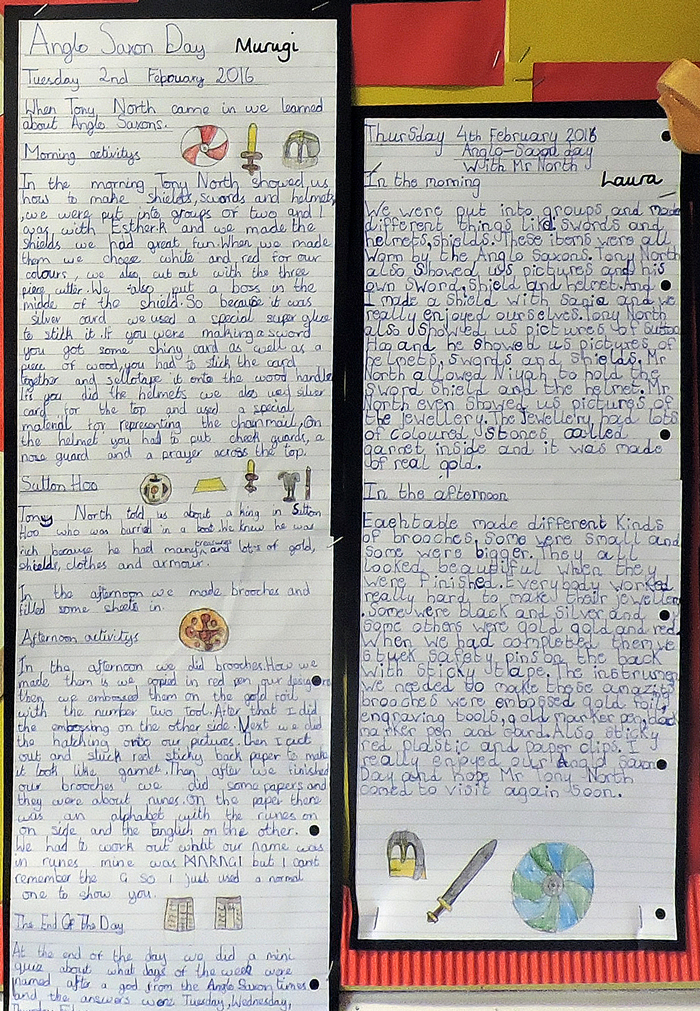 Anglo Saxon Day Murugi
Tuesday 2nd Fepruary 2016
When Tony North came in we learned
about Anglo Saxons.
Morning activitys
In the morning Tony North showed us
how to make shields, swords and helmets
,we were put into groups or two and I
was with Estherk and we made the
shields we had great fun. When we made
them we choose white and red for our
colours, we also cut out with the three
piece cutter. We also put a boss in the
middle of the shield. So because it was
silver card we used a special super glue
to stilk it. If you were making a sword
you got some shiny card as well as a
piece of wood, you had to stick the card
together and sellotape it onto the wood handle
If you did the helmets we also used silver
card for the top and used a special
material for representing the chainmail, On
the helmet you had to put cheek guards, a
nose guard and a prayer across the top.
Sutton Hoo
Tony North told us about a king in Sutton
Hoo who was burried in a boat. We knew he was
rich because he had many treasures and lots of gold,
shields, clothes and armour.
In the afternoon we made brooches and
filled some sheets in.
Afternoon activitys
In the afternoon we did brooches. How we
made them is we copied in red pen our designs
then we embossed them on the gold foil
with the number two tool. After that I did
the embossing on the other side. Next we did
the hatching onto our pictures. Then I cut
out and stuck red sticky back paper to make
it look like garnet. Then after we finished
our brooches we did some papers and
they were about runes. On the paper there
was an alphabet with the runes on
on side and the English on the other.
We had to work out what our name was
in runes mine was but I cant
remember the G so I just used a normal
one to show you.
The End Of The Day
At the end of the day we did a mini
quiz about what days of the week were
named after a god from the Anglo Saxon times
and the answers were Tuesday, Wednesday,
Thursday Laura
Thursday 4th February 2016
Anglo-Saxon day
With Mr North
In the morning
We were put into groups and made
different things like swords and
helmets, shields. These items were all
worn by the Anglo Saxons. Tony North
also showed us pictures and his
own sword, shield and helmet. And
I made a shield with Sania and we
really enjoyed ourselves. Tony North
also showed us pictures of Sutton
Hoo and he showed us pictures of
helmets, swords and shields. Mr
North allowed Niyah to hold the
sword shield and the helmet. Mr
North even showed us pictures of
the jewellery. The Jewellery had lots
of coloured stones called
garnet inside and it was made
of real gold.
In the afternoon
Each table made different kinds
of brooches, some were small and
some were bigger. They all
looked beautiful when they
were finished. Everybody worked
really hard to make their jewellery
. Some were black and silver and
some others were gold gold and red.
When we had completed them we
stuck safety pins on the back
with sticky tape. The instrumen
we needed to make these amazing
brooches were embossed gold foil,
engraving tools, gold marker pen, black
marker pen and card. Also sticky
red plastic and paper clips. I
really enjoyed our Anglo Saxon
Day and hope Mr Tony North
comes to visit again soon.